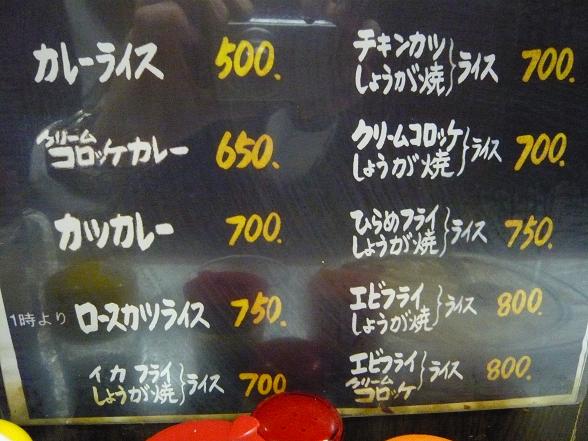 カレーライス 500.
クリーム
コロッケカレー 650.
カツカレー 700.
1時より ロースカツライス 750.
イカフライ
しょうが焼 ライス 700
チキンカツ
しょうが焼 ライス 700.
クリームコロッケ
しょうが焼 ライス 700.
ひらめフライ
しょうが焼 ライス 750.
エビフライ
しょうが焼 ライス 800.
エビフライ
クリーム
コロッケ ライス 800.